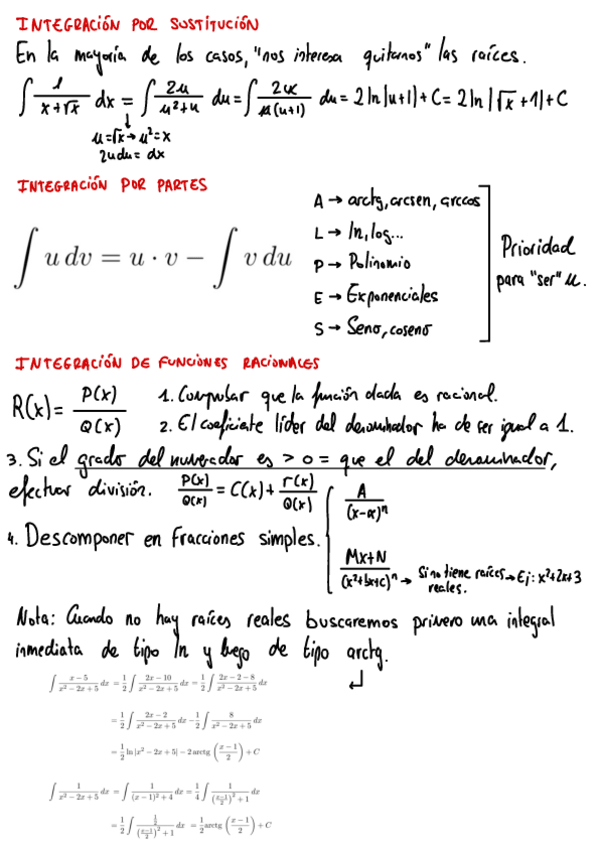 INTEGRACIÓN POR SUSTITUCIÓN
En la mayoría de los casos, "nos interesa quitarnos" las raíces.
∫ 1/(x+√x) dx = ∫ 2u/(u²+u) du = ∫ 2u/(u(u+1)) du = 2 ln|u+1| + C = 2 ln|√x+1| + C
↓
u=√x → u²=x
2udu = dx
INTEGRACIÓN POR PARTES
∫ u dv = u · v − ∫ v du
A → arctg, arcsen, arccos
L → ln, log...
P → Polinomio
E → Exponenciales
S → Seno, coseno
Prioridad
para "ser" u.
INTEGRACIÓN DE FUNCIONES RACIONALES
R(x) = P(x)/Q(x)
1. Comprobar que la función dada es racional.
2. El coeficiente líder del denominador ha de ser igual a 1.
3. Si el grado del numerador es > o = que el del denominador,
efectuar división. P(x)/Q(x) = C(x) + r(x)/Q(x)
4. Descomponer en fracciones simples.
A/(x-α)ⁿ
Mx+N/(x²+bx+c)ⁿ → Si no tiene raíces reales. → Ej: x²+2x+3
Nota: Cuando no hay raíces reales buscaremos primero una integral
inmediata de tipo ln y luego de tipo arctg.
↲
∫ (x−5)/(x²−2x+5) dx = 1/2 ∫ (2x−10)/(x²−2x+5) dx = 1/2 ∫ (2x−2−8)/(x²−2x+5) dx
= 1/2 ∫ (2x−2)/(x²−2x+5) dx − 1/2 ∫ 8/(x²−2x+5) dx
= 1/2 ln|x²−2x+5| − 2 arctg((x−1)/2) + C
∫ 1/(x²−2x+5) dx = ∫ 1/((x−1)²+4) dx = 1/4 ∫ 1/(((x−1)/2)²+1) dx
= 1/2 ∫ (1/2)/(((x−1)/2)²+1) dx = 1/2 arctg((x−1)/2) + C